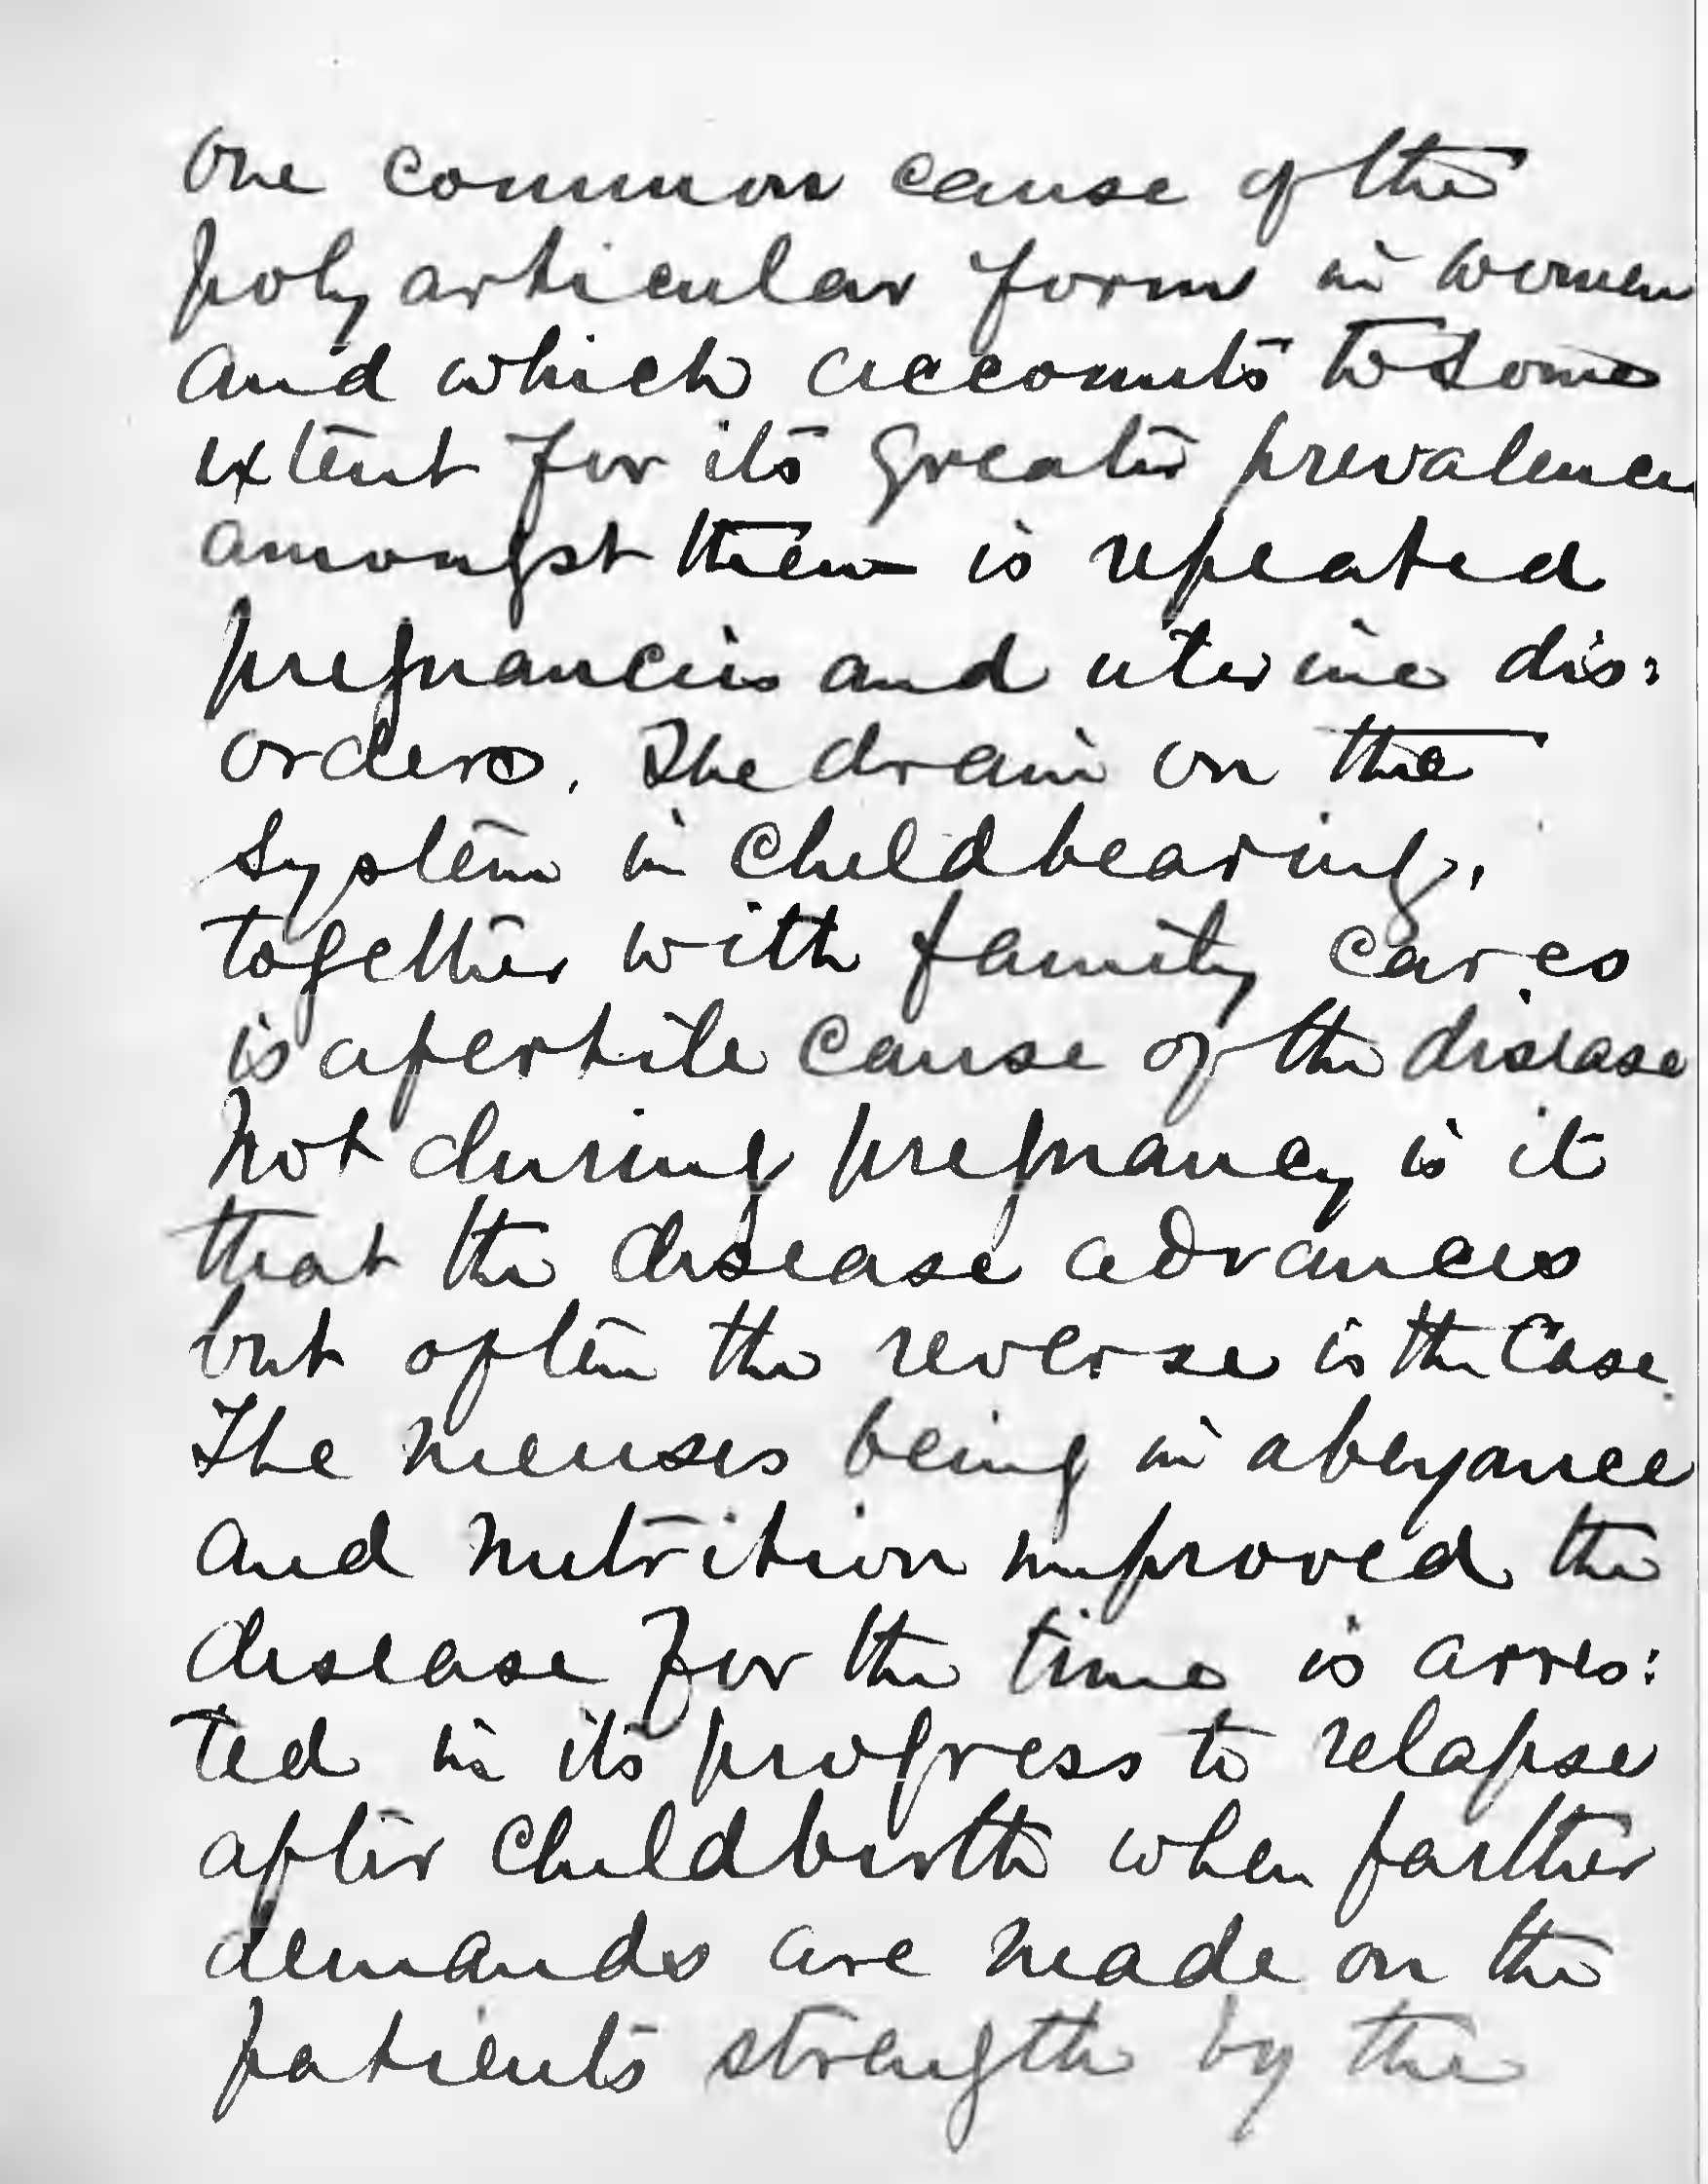 One common cause of the
polyarticular form in women
and which accounts to some
extent for its greater prevalence
amongst them is repeated
pregnancies and uterine dis:
orders. The drain on the
system in childbearing,
together with family cares
is a fertile cause of the disease
Not during pregnancy is it
that the disease advances
but often the reverse is the case.
The menses being in abeyance
and nutrition improved the
disease for the time is arres:
ted in its progress to relapse
after childbirth when farther
demands are made on the
patients strength by the